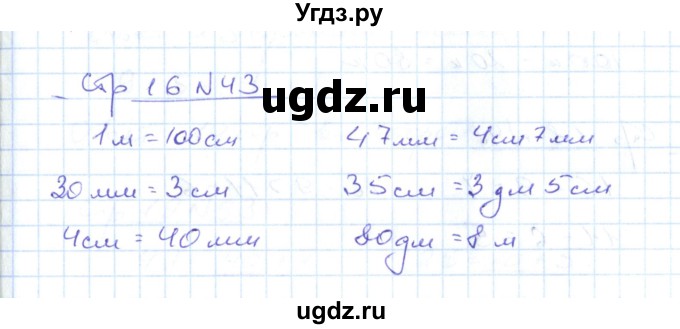 Угдз.ру
Стр 16 N 43
ugdz.ru
1 м = 100 см 47 мм = 4 см 7 мм
30 мм = 3 см 35 см = 3 дм 5 см
4 см = 40 мм 80 дм = 8 м
ugdz.ru